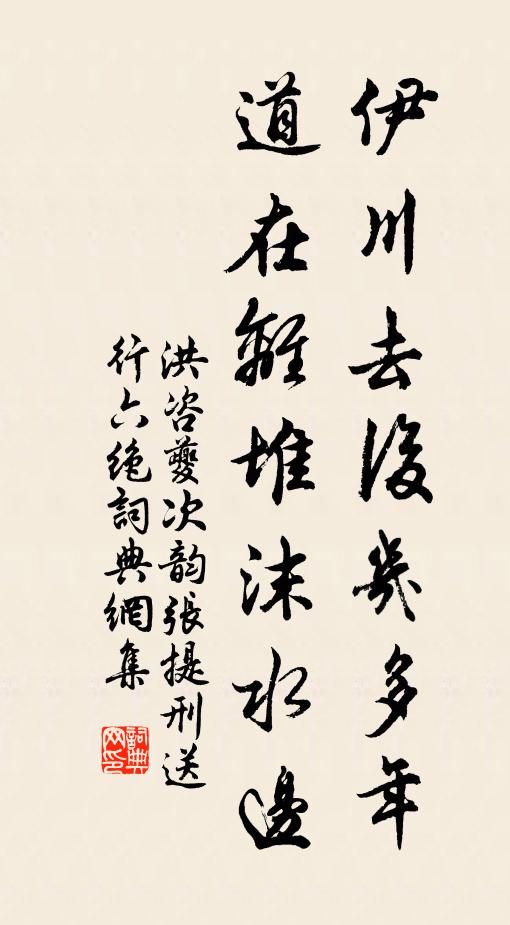 伊川去後幾多年
道在離堆沫水邊
洪咨夔次韵張提刑送
行六絶詞典網集
詞典網印